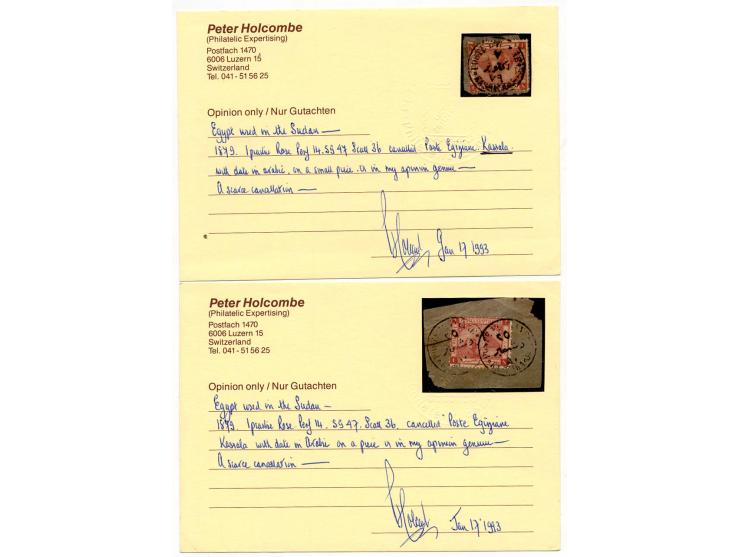 Peter Holcombe
(Philatelic Expertising)
Postfach 1470
6006 Luzern 15
Switzerland
Tel. 041 - 51 56 25
Opinion only / Nur Gutachten
Egypt used in the Sudan —
1879. 1 piastre Rose Perf 14. SG 47 Scott 36 cancelled Poste Egiziane. Kassala.
with date in arabic. on a small piece. is in my opinion genuine —
A scarce cancellation —
Jan 17 1993
Peter Holcombe
(Philatelic Expertising)
Postfach 1470
6006 Luzern 15
Switzerland
Tel. 041 - 51 56 25
Opinion only / Nur Gutachten
Egypt used in the Sudan —
1879. 1 piastre Rose Perf 14. SG 47. Scott 36. cancelled Poste Egiziane
Kassala with date in Arabic on a piece is in my opinion genuine —
A scarce cancellation —
Jan 17 1993